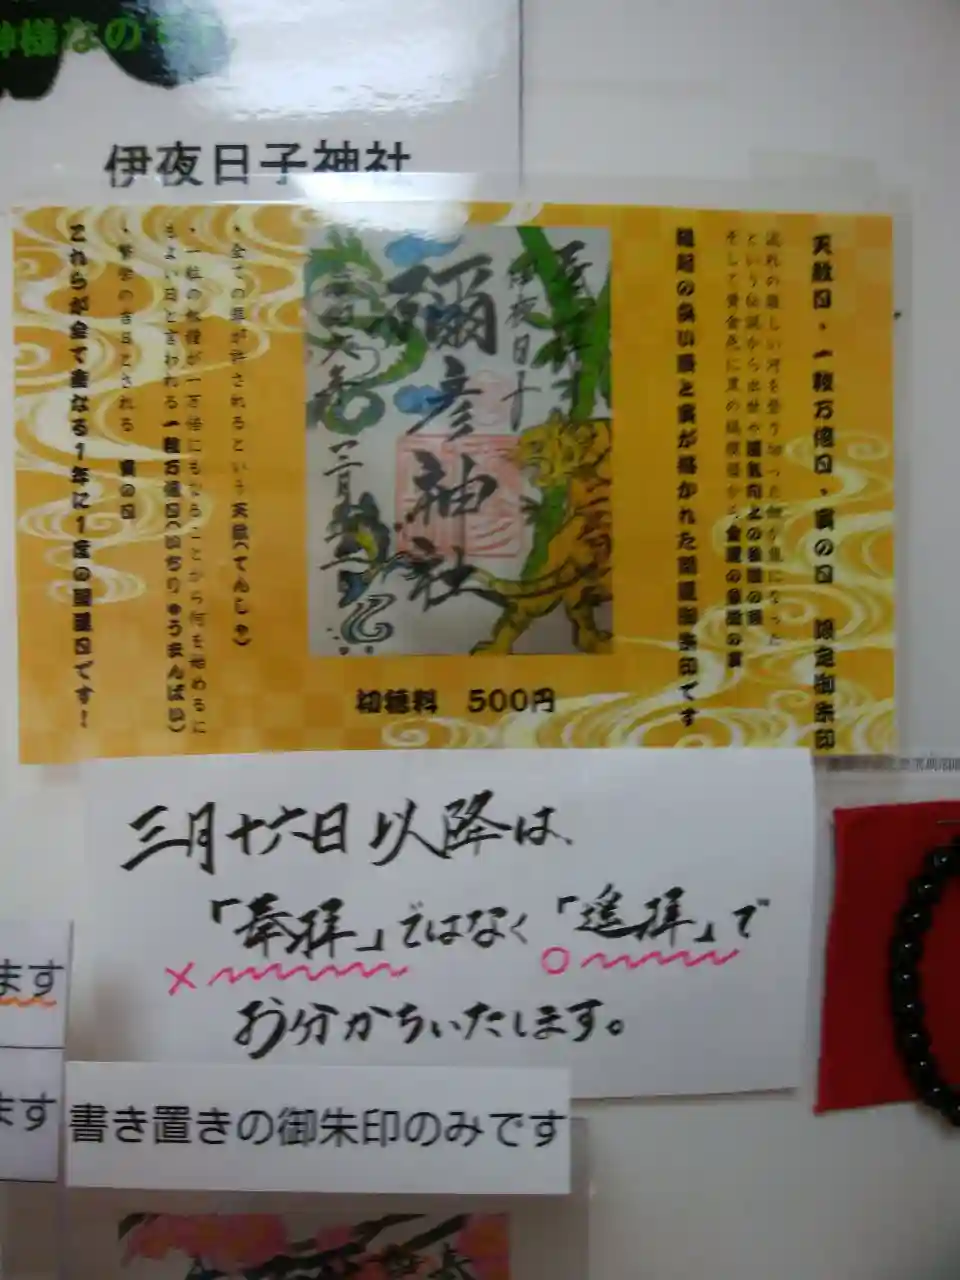 神様なのです
伊夜日子神社
天赦日・一粒万倍日・寅の日 限定御朱印
流れの激しい河を登り切った鯉が龍になった
という伝説から出世や運気向上の象徴の龍
そして黄金色に黒の縞模様から金運の象徴の寅
縁起の良い龍と寅が描かれた開運御朱印です
伊夜日子
彌彦神社
初穂料 500円
・全ての罪が許されるという天赦(てんしゃ)
・一粒の籾種が一万倍にもなることから何を始めるに
もよい日と言われる一粒万倍日(いちりゅうまんばい)
吉日とされる 寅の日
これらが全て重なる1年に1度の開運日です!
三月十六日以降は、
「奉拝」ではなく「遙拝」で
× ○
お分かちいたします。
ます
ます
書き置きの御朱印のみです